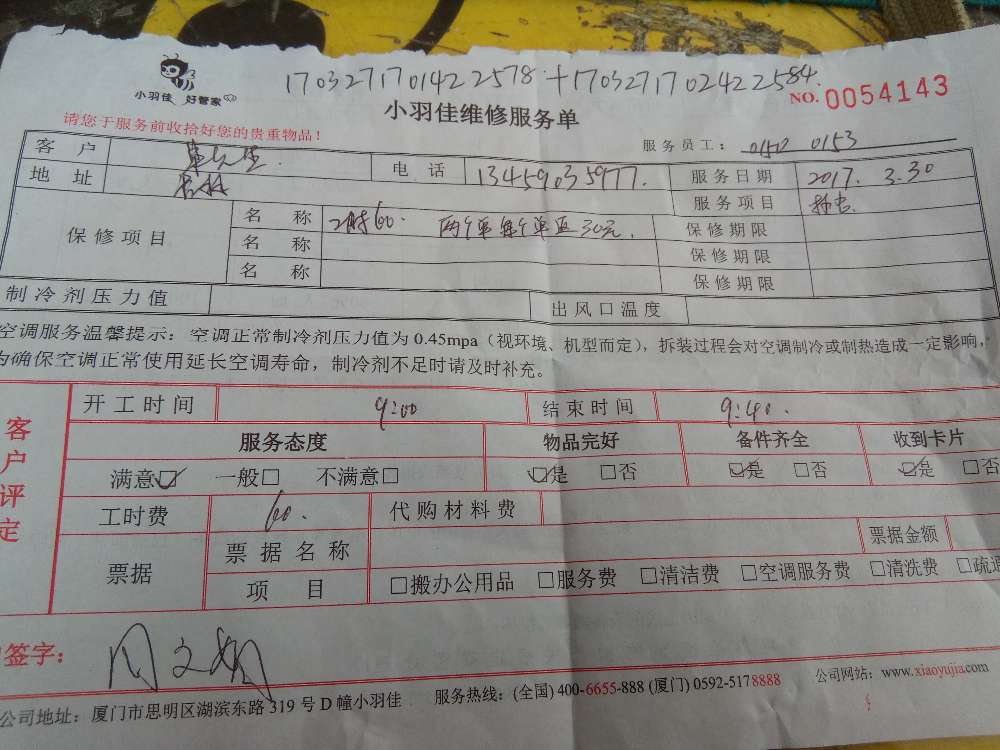 1703271701422578+1703271702422584
小羽佳 好管家
NO. 0054143
小羽佳维修服务单
请您于服务前收拾好您的贵重物品！
服务员工： 0150 0153
客户 电话 13459035977. 服务日期 2017. 3.30
地址 服务项目
保修项目 名称 60. 两个单 每个单 30元. 保修期限
名称 保修期限
名称 保修期限
制冷剂压力值 出风口温度
空调服务温馨提示：空调正常制冷剂压力值为 0.45mpa（视环境、机型而定），拆装过程会对空调制冷或制热造成一定影响，
为确保空调正常使用延长空调寿命，制冷剂不足时请及时补充。
客户评定
开工时间 9:00 结束时间 9:40.
服务态度 物品完好 备件齐全 收到卡片
满意☑ 一般□ 不满意□ ☑是 □否 ☑是 □否 ☑是 □否
工时费 60. 代购材料费
票据 票据名称 票据金额
项目 □搬办公用品 □服务费 □清洁费 □空调服务费 □清洗费 □疏通
签字：
公司地址：厦门市思明区湖滨东路 319 号 D 幢小羽佳 服务热线：(全国) 400-6655-888 (厦门) 0592-5178888 公司网站：www.xiaoyujia.com